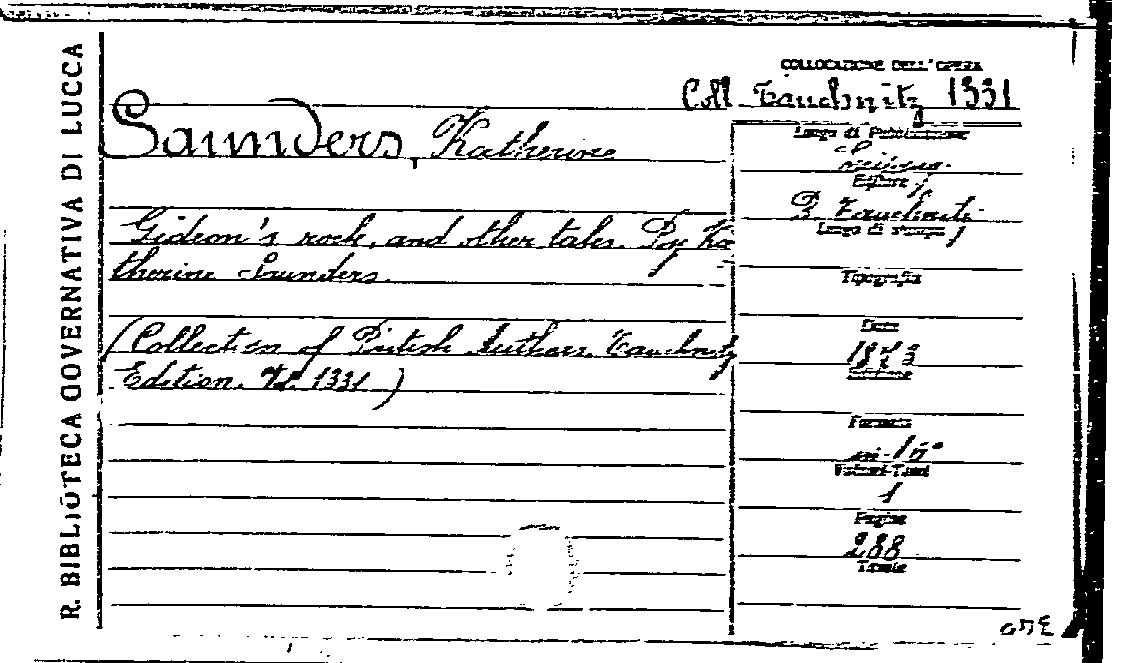 R. BIBLIOTECA GOVERNATIVA DI LUCCA
COLLOCAZIONE DELL'OPERA
Coll. Tauchnitz 1331
Saunders, Katherine
Gideon's rock, and other tales. By Ka-
therine Saunders.
(Collection of British Authors. Tauchnitz
Edition. Vol. 1331.)
Luogo di Pubblicazione
Editore
B. Tauchnitz
Luogo di stampa
Tipografia
Data
1873
Edizione
Formato
in-16°
Volumi-Tomi
1
Pagine
288
Tavole